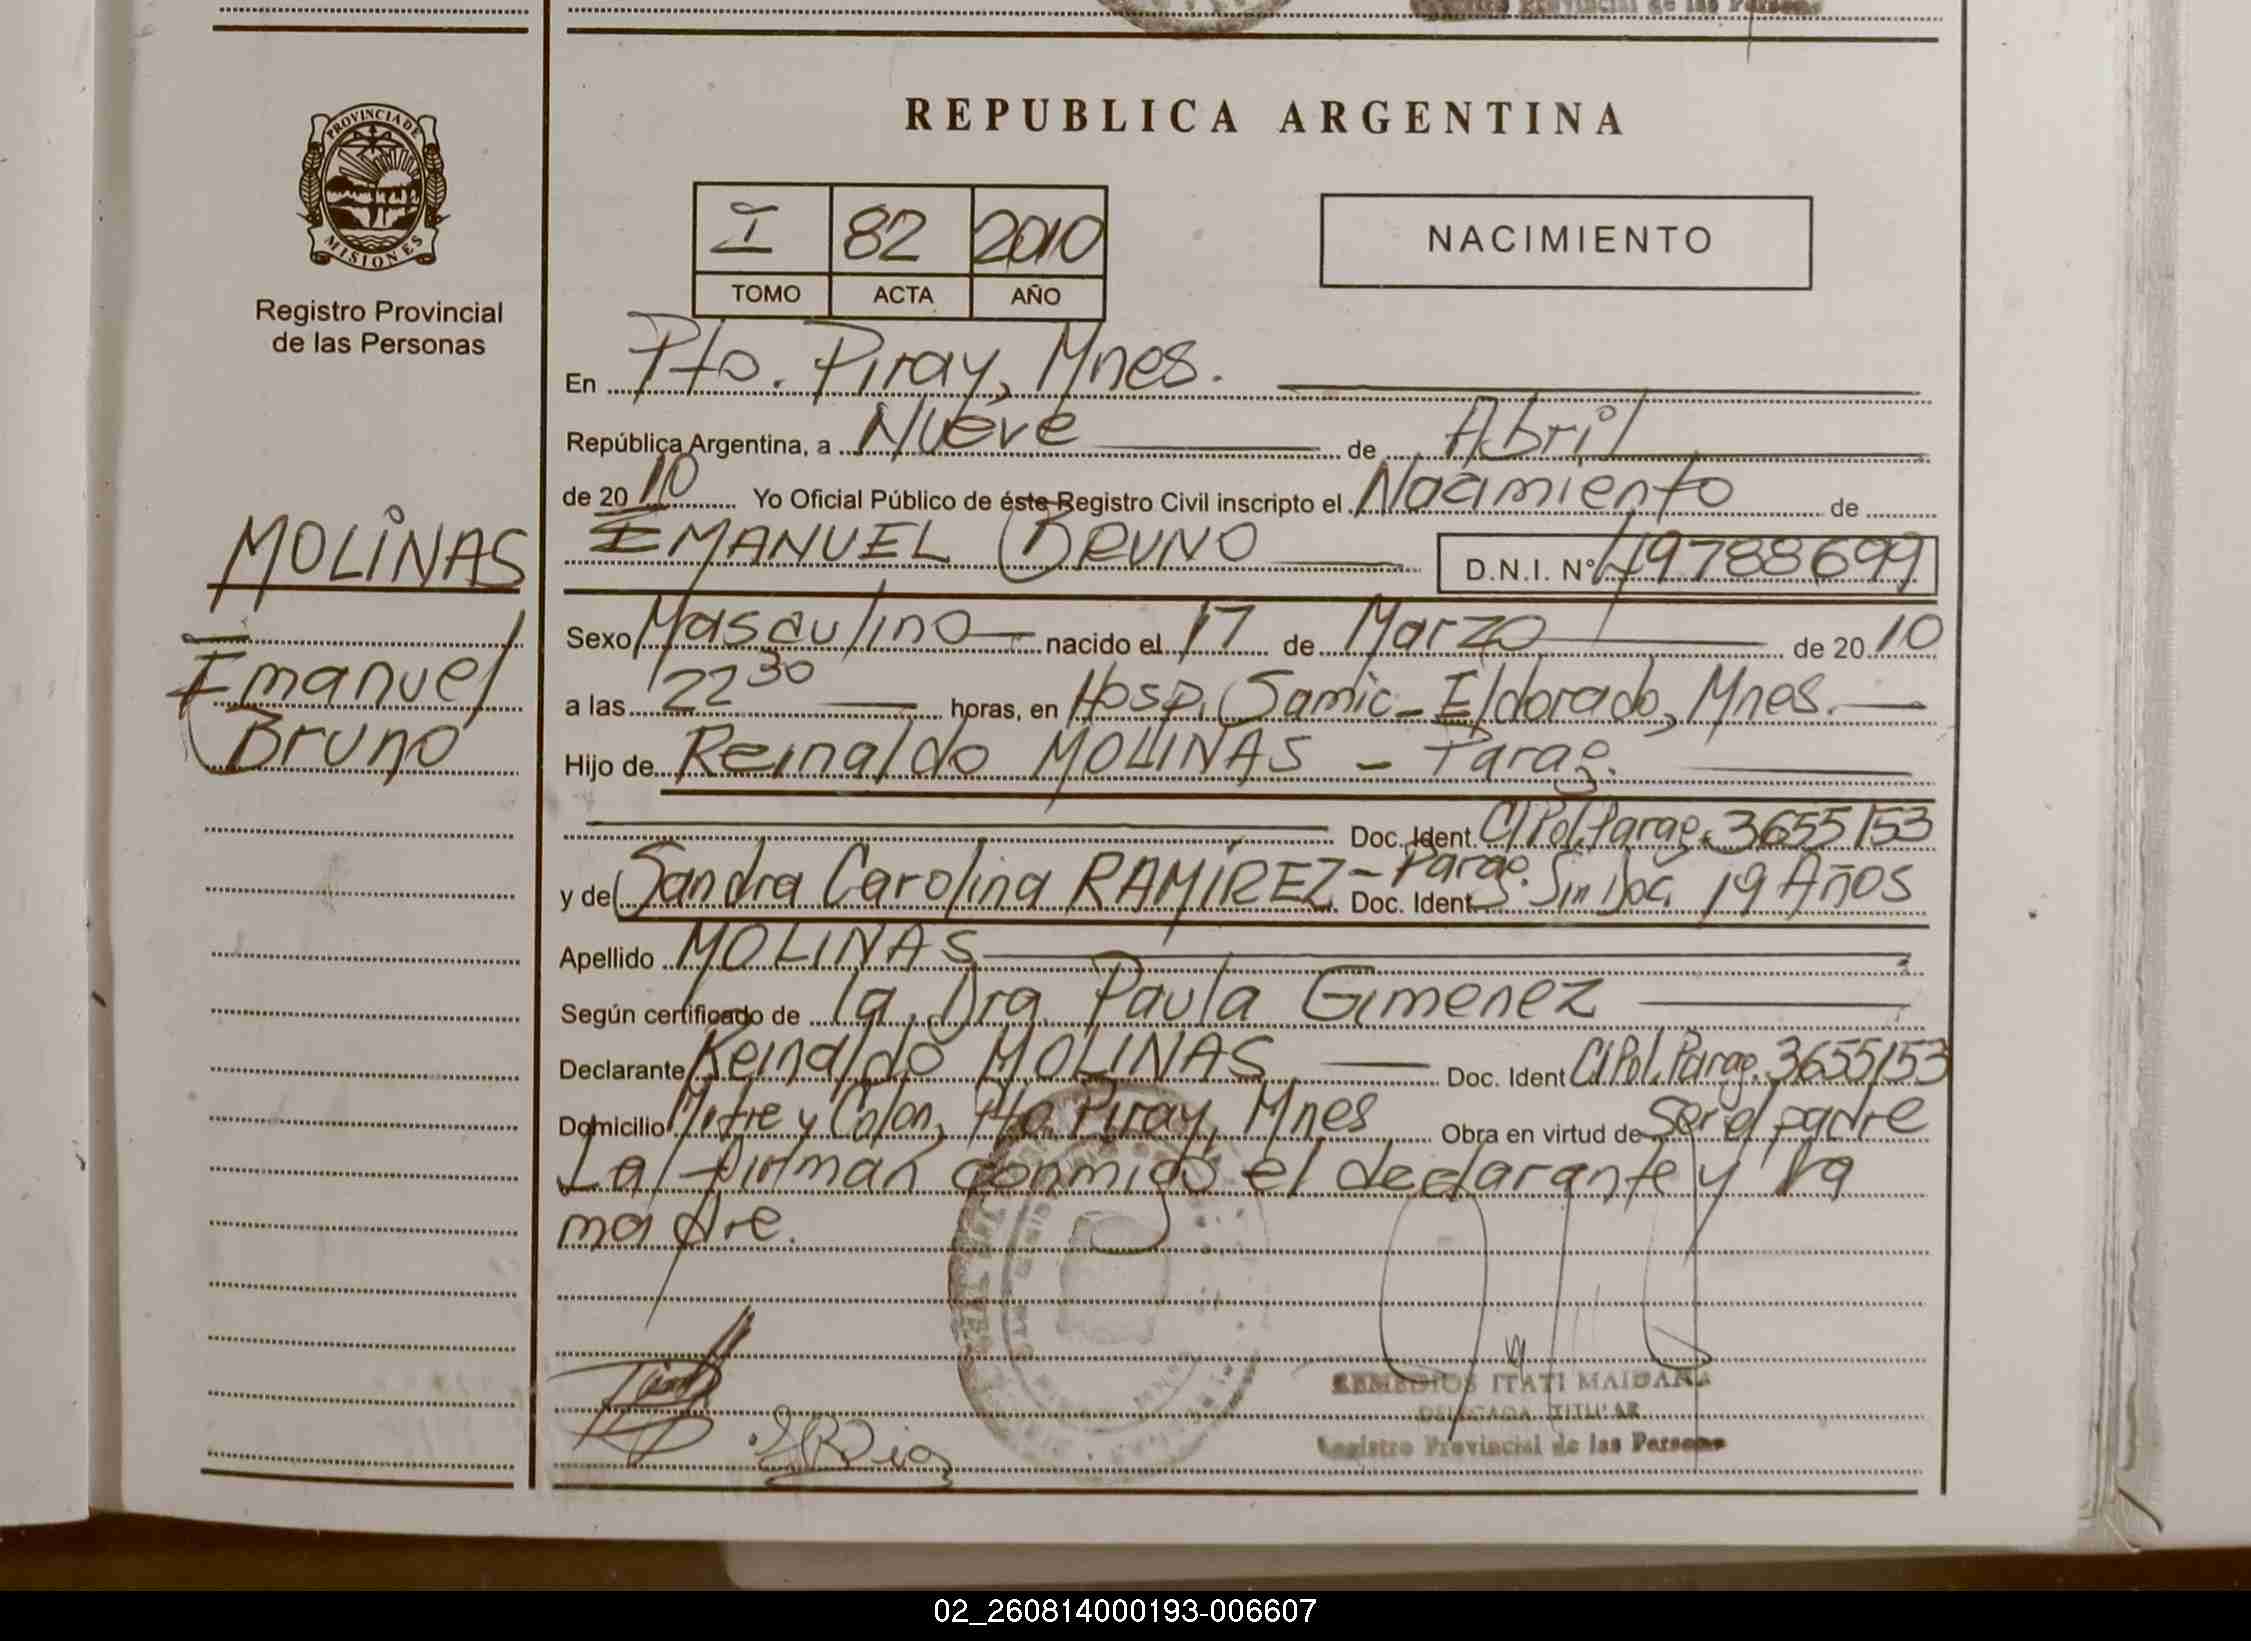 REPUBLICA ARGENTINA
PROVINCIA DE
MISIONES
Registro Provincial
de las Personas
I 82 2010
TOMO ACTA AÑO
NACIMIENTO
En Pto. Piray, Mnes.
República Argentina, a Nueve de Abril
de 2010 Yo Oficial Público de éste Registro Civil inscripto el Nacimiento de
EMANUEL BRUNO D.N.I. Nº 49788699
MOLINAS
Emanuel
Bruno
Sexo Masculino nacido el 17 de Marzo de 2010
a las 22 30 horas, en Hosp. Samic - Eldorado, Mnes.
Hijo de Reinaldo MOLINAS - Parag.
Doc. Ident. CI Pol. Parag. 3655153
y de Sandra Carolina RAMÍREZ - Parag. Doc. Ident. Sin Doc. 19 Años
Apellido MOLINAS
Según certificado de la Dra Paula Gimenez
Declarante Reinaldo MOLINAS Doc. Ident CI Pol. Parag. 3655153
Domicilio Mitre y Colon, Pto. Piray, Mnes Obra en virtud de ser el padre
La firman conmigo el declarante y la
madre.
REMEDIOS ITATI MAIDANA
DELEGADA TITULAR
Registro Provincial de las Personas
02_260814000193-006607